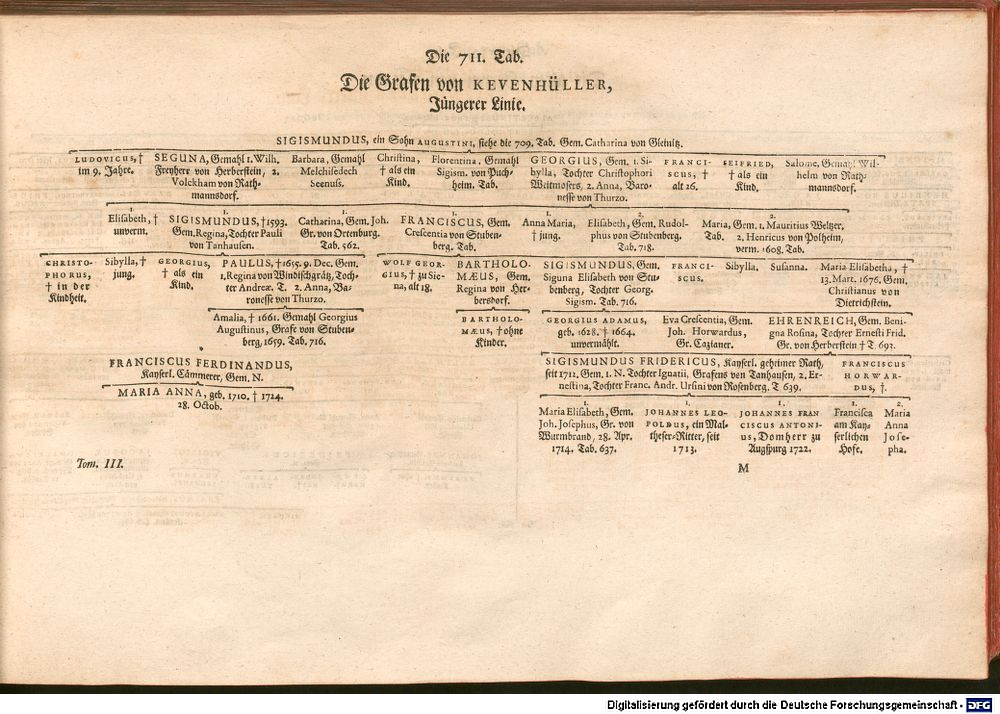 Die 711. Tab.
Die Grafen von KEVENHÜLLER,
Jüngerer Linie.
SIGISMUNDUS, ein Sohn AUGUSTINI, siehe die 709. Tab. Gem. Catharina von Gleinitz.
LUDOVICUS, †
im 9. Jahre.
SEGUNA, Gemahl 1. Wilh.
Freyherr von Herberstein, 2.
Volckham von Rath-
mannsdorf.
Barbara, Gemahl
Melchisedech
Seenuss.
Christina,
† als ein
Kind.
Florentina, Gemahl
Sigism. von Puch-
heim. Tab.
GEORGIUS, Gem. 1. Si-
bylla, Tochter Christophori
Weitmosers, 2. Anna, Baro-
nesse von Thurzo.
FRANCI-
SCUS, †
alt 26.
SEIFRIED,
† als ein
Kind.
Salome, Gemahl Wil-
helm von Rath-
mannsdorf.
1.
Elisabeth, †
unverm.
1.
SIGISMUNDUS, † 1593.
Gem. Regina, Tochter Pauli
von Tanhausen.
1.
Catharina, Gem. Joh.
Gr. von Ortenburg.
Tab. 562.
1.
FRANCISCUS, Gem.
Crescentia von Stuben-
berg. Tab.
1.
Anna Maria,
† jung.
2.
Elisabeth, Gem. Rudol-
phus von Stubenberg.
Tab. 718.
2.
Maria, Gem. 1. Mauritius Weltzer,
Tab. 2. Henricus von Polheim,
verm. 1608. Tab.
CHRISTO-
PHORUS,
† in der
Kindheit.
Sibylla, †
jung.
GEORGIUS,
† als ein
Kind.
PAULUS, † 1655. 9. Dec. Gem.
1. Regina von Windischgrätz, Toch-
ter Andreæ. T. 2. Anna, Ba-
ronesse von Thurzo.
WOLF GEOR-
GIUS, † zu Sie-
na, alt 18.
BARTHOLO-
MÆUS, Gem.
Regina von Her-
bersdorf.
SIGISMUNDUS, Gem.
Siguna Elisabeth von Stu-
benberg, Tochter Georg.
Sigism. Tab. 716.
FRANCI-
SCUS.
Sibylla.
Susanna.
Maria Elisabetha, †
13. Mart. 1676. Gem.
Christianus von
Dietrichstein.
Amalia, † 1661. Gemahl Georgius
Augustinus, Grafe von Stuben-
berg, 1659. Tab. 716.
BARTHOLO-
MÆUS, † ohne
Kinder.
GEORGIUS ADAMUS,
geb. 1628. † 1664.
unvermählt.
Eva Crescentia, Gem.
Joh. Horwardus,
Gr. Cazianer.
EHRENREICH, Gem. Beni-
gna Rosina, Tochter Ernesti Frid.
Gr. von Herberstein † T. 692.
FRANCISCUS FERDINANDUS,
Kayserl. Cämmerer, Gem. N.
SIGISMUNDUS FRIDERICUS, Kayserl. geheimer Rath,
seit 1712. Gem. 1. N. Tochter Ignatii, Grafens von Tanhausen, 2. Er-
nestina, Tochter Franc. Andr. Ursini von Rosenberg. T 639.
FRANCISCUS
HORWAR-
DUS, †.
MARIA ANNA, geb. 1710. † 1724.
28. Octob.
1.
Maria Elisabeth, Gem.
Joh. Josephus, Gr. von
Wurmbrand, 28. Apr.
1714. Tab. 637.
1.
JOHANNES LEO-
POLDUS, ein Mal-
theser-Ritter, seit
1713.
1.
JOHANNES FRAN
CISCUS ANTONI-
US, Domherr zu
Augspurg 1722.
1.
Francisca
am Kay-
serlichen
Hofe.
2.
Maria
Anna
Jose-
pha.
Tom. III.
M
Digitalisierung gefördert durch die Deutsche Forschungsgemeinschaft - DFG